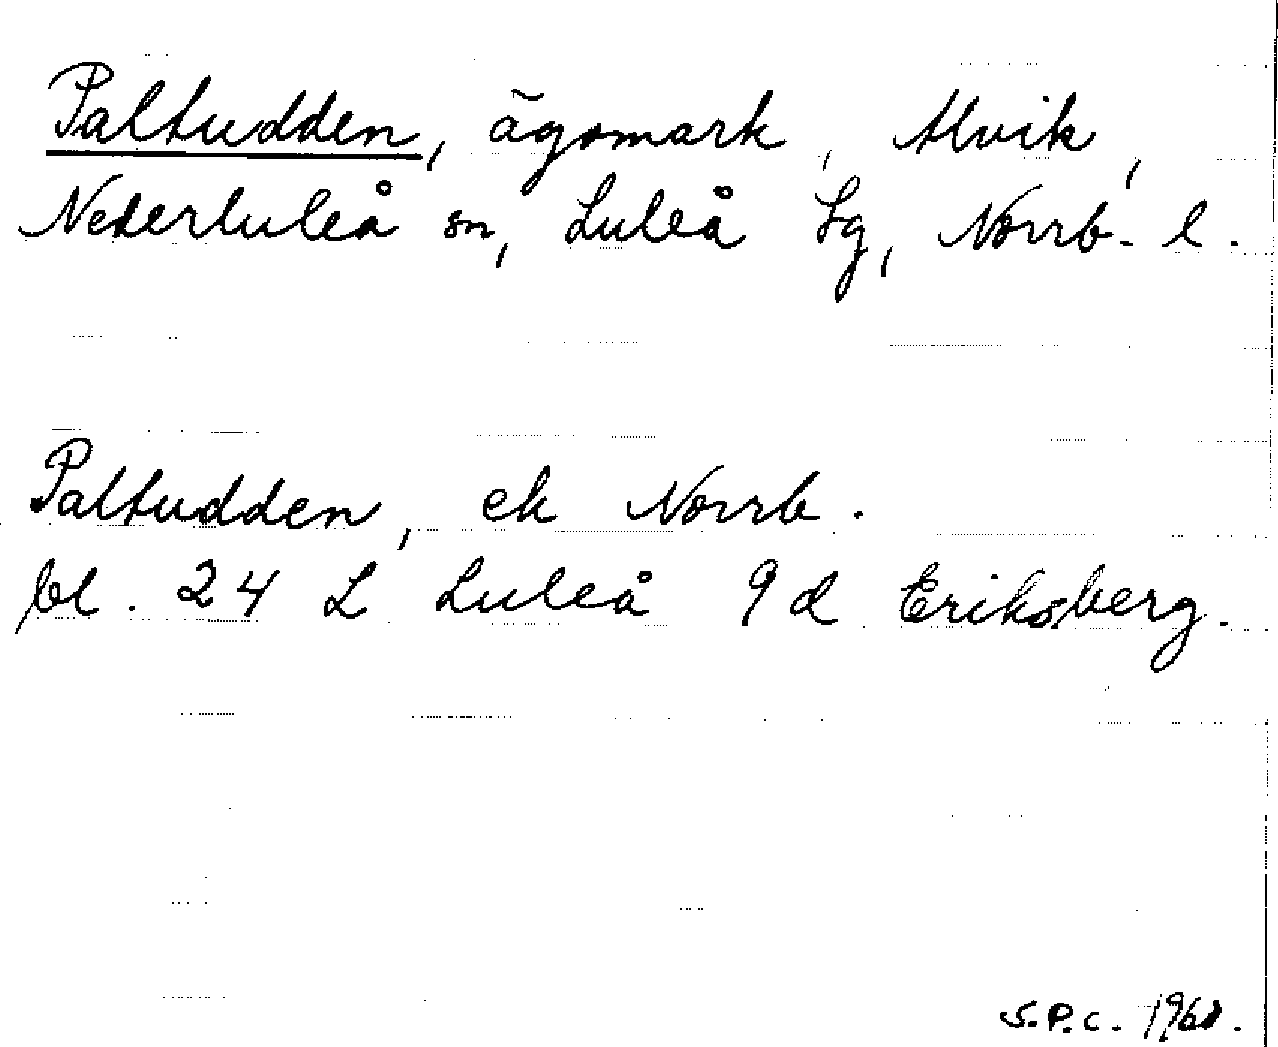 Paltudden, ägomark, Alvik,
Nederluleå sn, Luleå tg, Norrb. l.
Paltudden, ek Norrb.
bl. 24 L Luleå 9 d Eriksberg.
S.P.C.